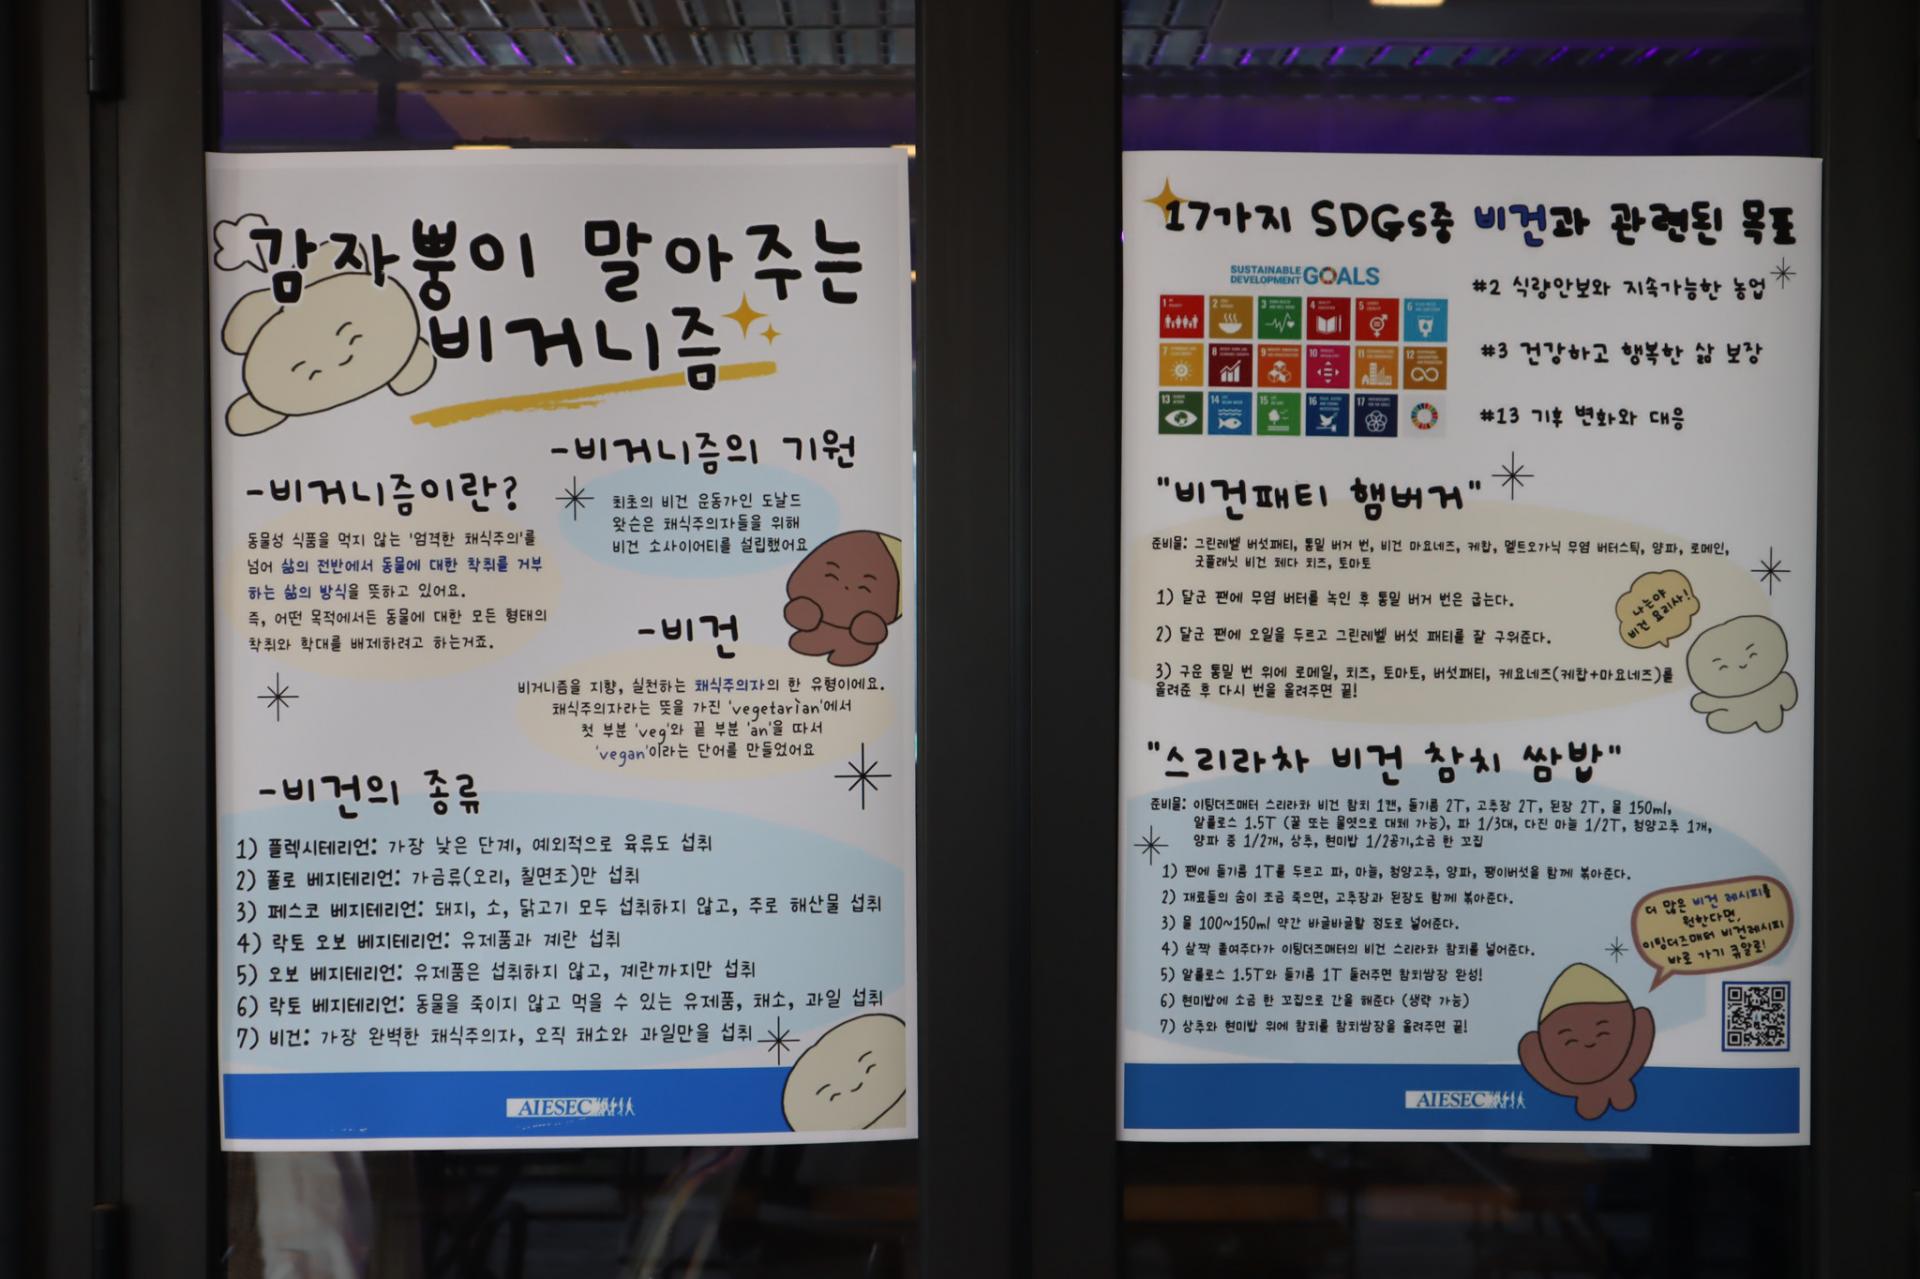 감자뿡이 말아주는
비거니즘
-비거니즘이란?
동물성 식품을 먹지 않는 '엄격한 채식주의'를
넘어 삶의 전반에서 동물에 대한 착취를 거부
하는 삶의 방식을 뜻하고 있어요.
즉, 어떤 목적에서든 동물에 대한 모든 형태의
착취와 학대를 배제하려고 하는거죠.
-비거니즘의 기원
최초의 비건 운동가인 도날드
왓슨은 채식주의자들을 위해
비건 소사이어티를 설립했어요
-비건
비거니즘을 지향, 실천하는 채식주의자의 한 유형이에요.
채식주의자라는 뜻을 가진 'vegetarian'에서
첫 부분 'veg'와 끝 부분 'an'을 따서
'vegan'이라는 단어를 만들었어요
-비건의 종류
1) 플렉시테리언: 가장 낮은 단계, 예외적으로 육류도 섭취
2) 폴로 베지테리언: 가금류(오리, 칠면조)만 섭취
3) 페스코 베지테리언: 돼지, 소, 닭고기 모두 섭취하지 않고, 주로 해산물 섭취
4) 락토 오보 베지테리언: 유제품과 계란 섭취
5) 오보 베지테리언: 유제품은 섭취하지 않고, 계란까지만 섭취
6) 락토 베지테리언: 동물을 죽이지 않고 먹을 수 있는 유제품, 채소, 과일 섭취
7) 비건: 가장 완벽한 채식주의자, 오직 채소와 과일만을 섭취
AIESEC
17가지 SDGs중 비건과 관련된 목표
SUSTAINABLE
DEVELOPMENT GOALS
1 2 3 4 5 6
7 8 9 10 11 12
13 14 15 16 17
#2 식량안보와 지속가능한 농업
#3 건강하고 행복한 삶 보장
#13 기후 변화와 대응
"비건패티 햄버거"
준비물: 그린레벨 버섯패티, 통밀 버거 번, 비건 마요네즈, 케찹, 멜트오가닉 무염 버터스틱, 양파, 로메인,
굿플래닛 비건 체다 치즈, 토마토
1) 달군 팬에 무염 버터를 녹인 후 통밀 버거 번은 굽는다.
2) 달군 팬에 오일을 두르고 그린레벨 버섯 패티를 잘 구워준다.
3) 구운 통밀 번 위에 로메일, 치즈, 토마토, 버섯패티, 케요네즈(케찹+마요네즈)를
올려준 후 다시 번을 올려주면 끝!
나는야
비건 요리사!
"스리라차 비건 참치 쌈밥"
준비물: 이팅더즈매터 스리라차 비건 참치 1캔, 들기름 2T, 고추장 2T, 된장 2T, 물 150ml,
알룰로스 1.5T (꿀 또는 물엿으로 대체 가능), 파 1/3대, 다진 마늘 1/2T, 청양고추 1개,
양파 중 1/2개, 상추, 현미밥 1/2공기,소금 한 꼬집
1) 팬에 들기름 1T를 두르고 파, 마늘, 청양고추, 양파, 팽이버섯을 함께 볶아준다.
2) 재료들의 숨이 조금 죽으면, 고추장과 된장도 함께 볶아준다.
3) 물 100~150ml 약간 바글바글할 정도로 넣어준다.
4) 살짝 졸여주다가 이팅더즈매터의 비건 스리라차 참치를 넣어준다.
5) 알룰로스 1.5T와 들기름 1T 둘러주면 참치쌈장 완성!
6) 현미밥에 소금 한 꼬집으로 간을 해준다 (생략 가능)
7) 상추와 현미밥 위에 참치를 참치쌈장을 올려주면 끝!
더 많은 비건 레시피를
원한다면,
이팅더즈매터 비건레시피
바로 가기 큐알로!
AIESEC